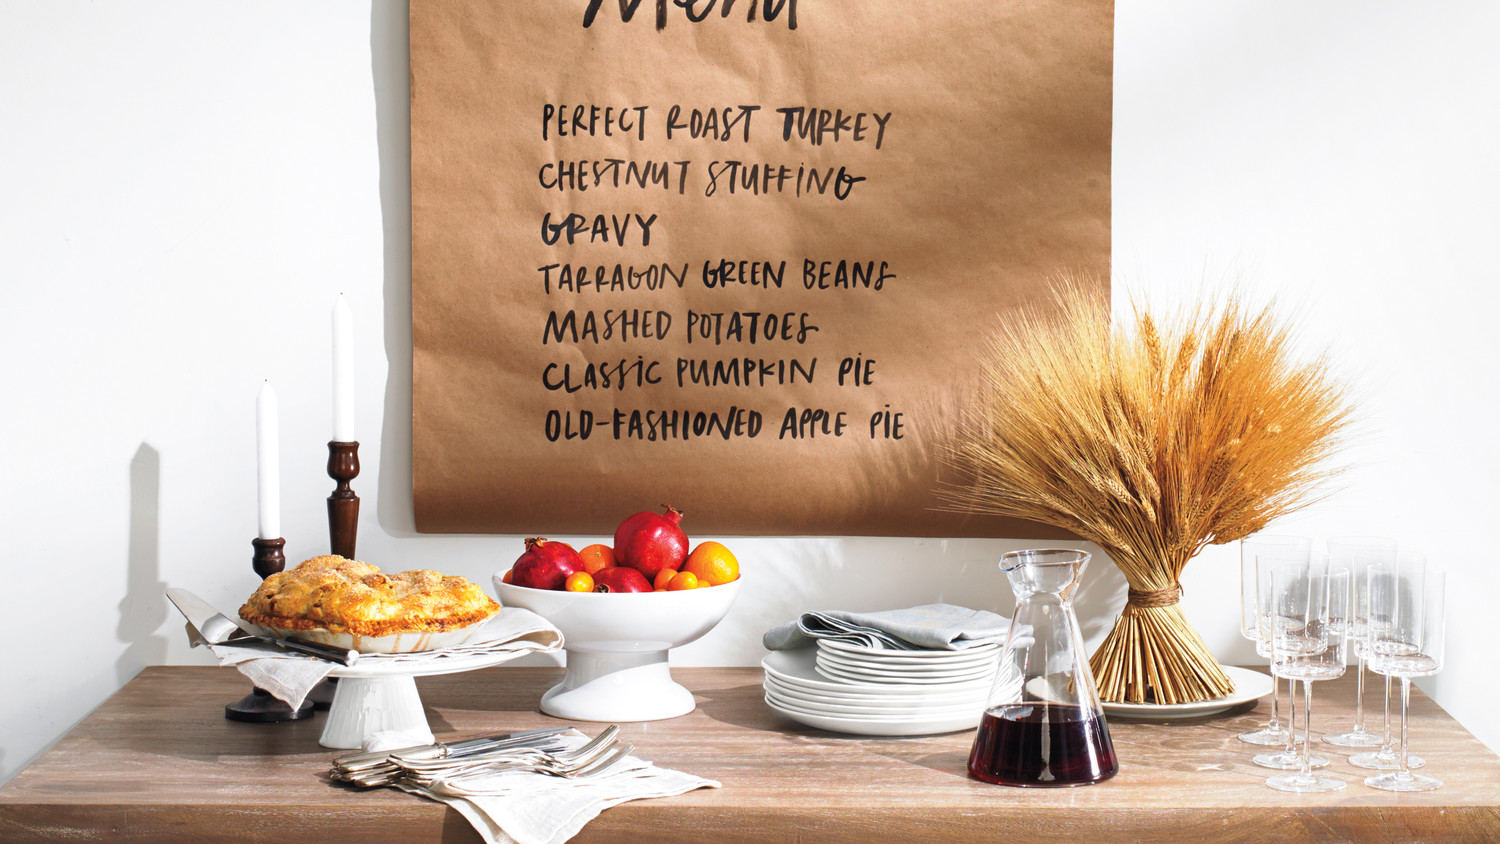 Menu
PERFECT ROAST TURKEY
CHESTNUT STUFFING
GRAVY
TARRAGON GREEN BEANS
MASHED POTATOES
CLASSIC PUMPKIN PIE
OLD-FASHIONED APPLE PIE